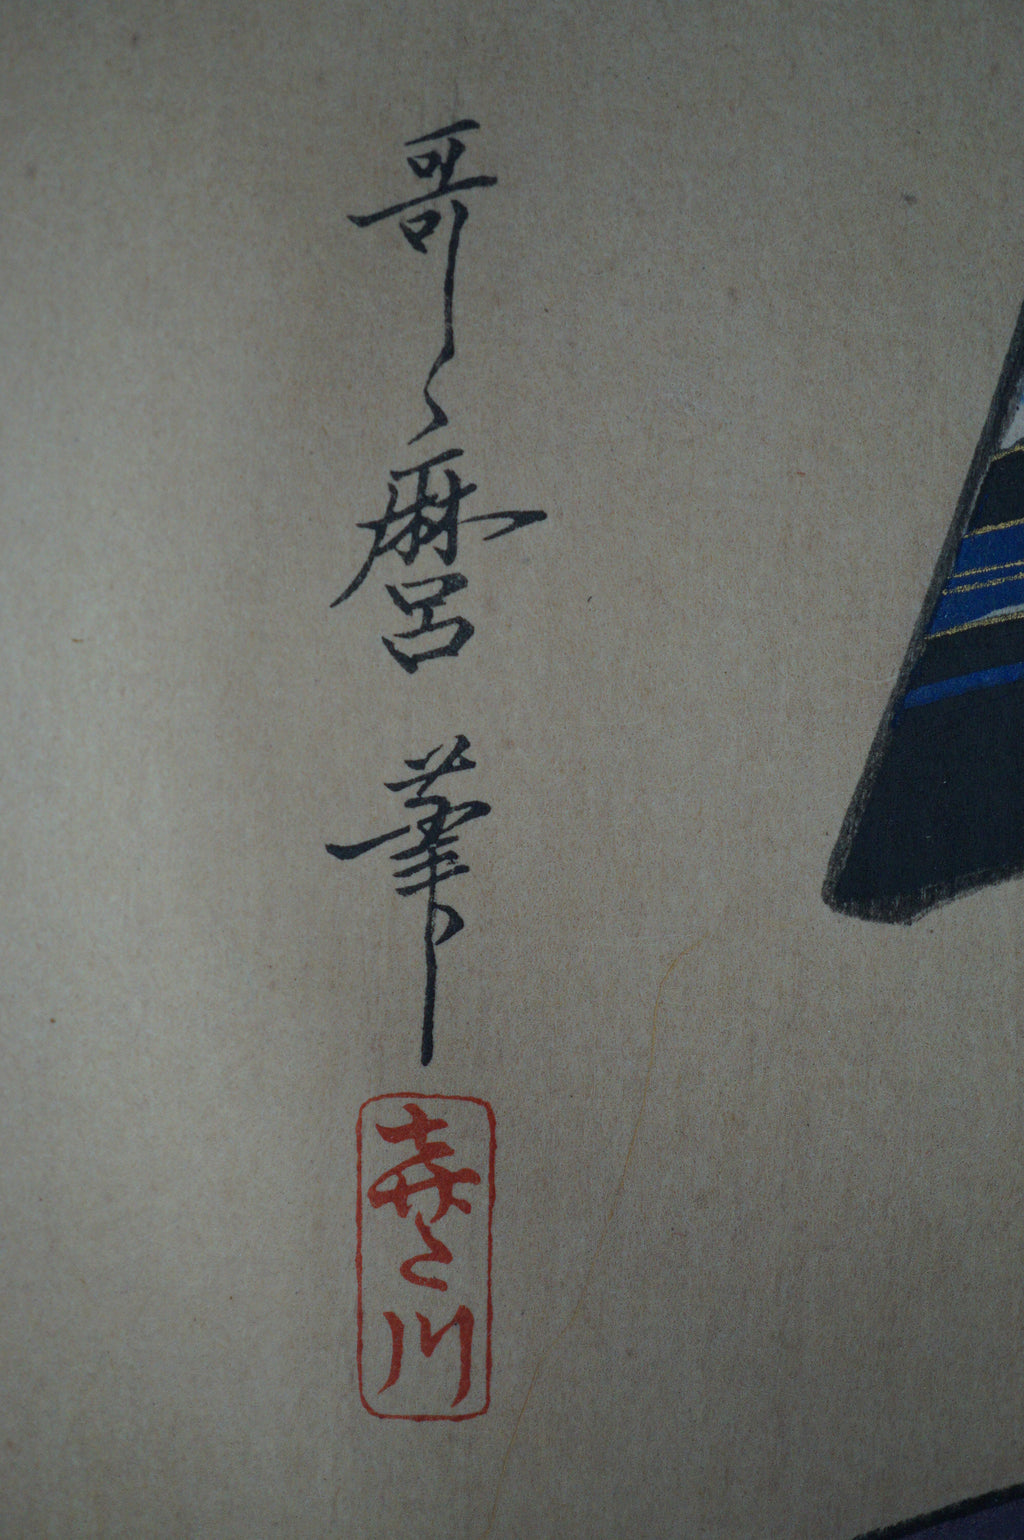 哥麿筆
喜多川